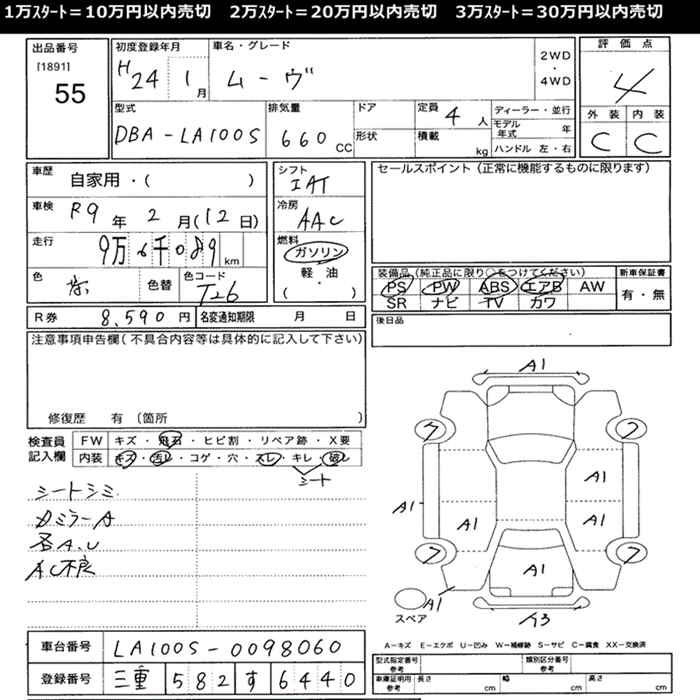 1万ｽﾀｰﾄ＝10万円以内売切　2万ｽﾀｰﾄ＝20万円以内売切　3万ｽﾀｰﾄ＝30万円以内売切
出品番号
[1891]
55
初度登録年月
H24 1月
車名・グレード
ムーヴ
2WD
・
4WD
評価点
4
外装 内装
C C
型式
DBA-LA100S
排気量
660 CC
ドア
形状
定員 4 人
積載 kg
ディーラー・並行
モデル年式 年
ハンドル 左・右
車歴 自家用・( )
車検 R9年 2月(12日)
走行 9万6千089 km
色
色替
色コード
T26
シフト
IAT
冷房
AAC
燃料
ガソリン
軽油
( )
セールスポイント（正常に機能するものに限ります）
装備品（純正品に限り○をつけてください）
PS PW ABS エアB AW
SR ナビ TV カワ
新車保証書
有・無
R券 8,590 円 名変通知期限 月 日
後日品
注意事項申告欄（不具合内容等は具体的に記入して下さい）
修復歴 有（箇所 ）
検査員記入欄
FW キズ・飛石・ヒビ割・リペア跡・X要
内装 キズ・汚レ・コゲ・穴・スレ・キレ・破レ
シート
シートシミ
カミラーA
各A.U
AC不良
A1
フ フ
A1
A1 A1 A1
フ フ
A1
A1
スペア
A3
A－キズ E－エクボ U－凹み W－補修跡 S－サビ C－腐食 XX－交換済
車台番号 LA100S-0098060
登録番号 三重 582 す 6440
型式指定番号
参考
類別区分番号
参考
車庫証明用
参考
長さ cm
幅 cm
高さ cm